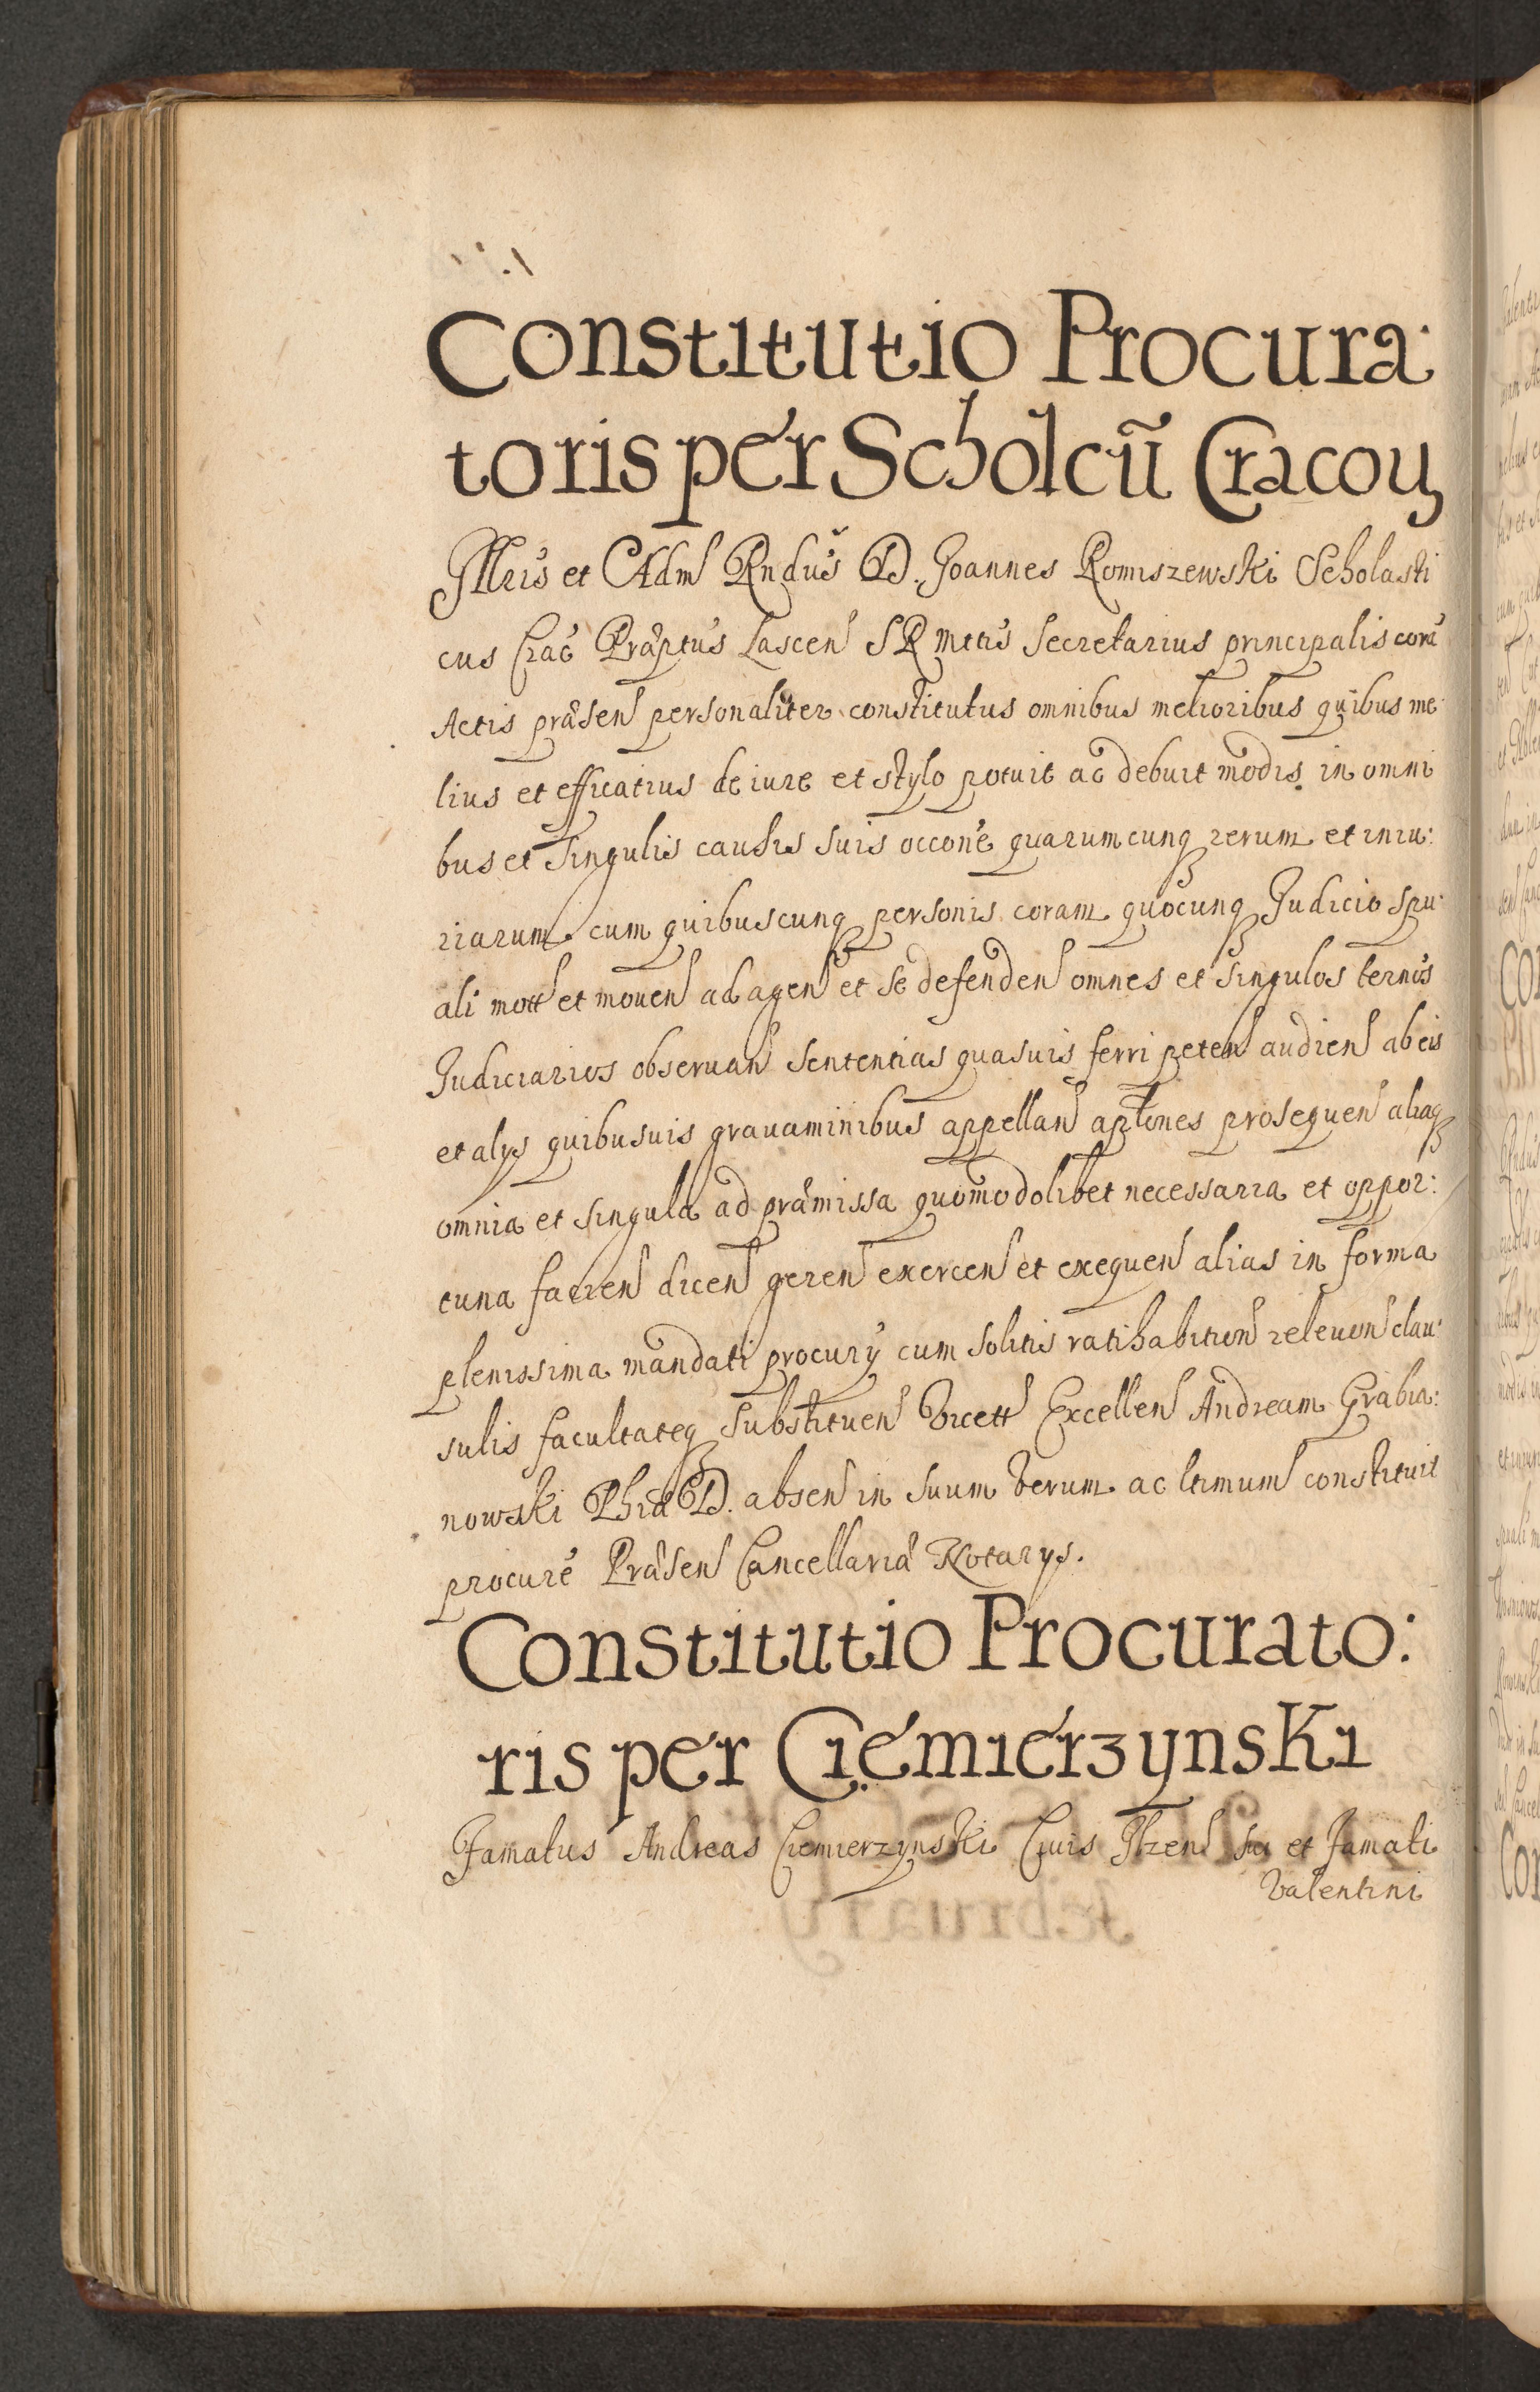 Constitutio Procura:
toris per Scholcũ Cracoụ
Illris et Adm Rndus D. Joannes Romiszewski Scholasti
cus Crac Præptus Lascen S R Mttis Secretarius principalis corã
Actis præsen personaliter constitutus omnibus melioribus quibus me:
lius et efficatius de iure et stylo potuit ac debuit modis in omni
bus et singulis causis suis occone quarumcunq rerum et iniu:
riarum cum quibuscunq personis coram quocunq Judicio spu:
ali mott et mouen ad agen et se defenden omnes et singulos ternos
Judiciarios obseruan sententias quasuis ferri peten audien ab eis
et alys quibusuis grauaminibus appellan aptiones prosequen aliaq
omnia et singula ad præmissa quomodolibet necessaria et oppor:
tuna facien dicen geren exercen et exequen alias in forma
plenissima mandati procury cum solitis ratihabition releuon clau:
sulis facultateq substituen Vicett Excellen Andream Grabia:
nowski Phiæ D. absen in suum verum ac ltimum constituit
procure Præsen Cancellariæ Notarys.
Constitutio Procurato:
ris per Ciemierzynski
Famatus Andreas Ciemierzynski Ciuis Ilzen suo et Famati
Valentini